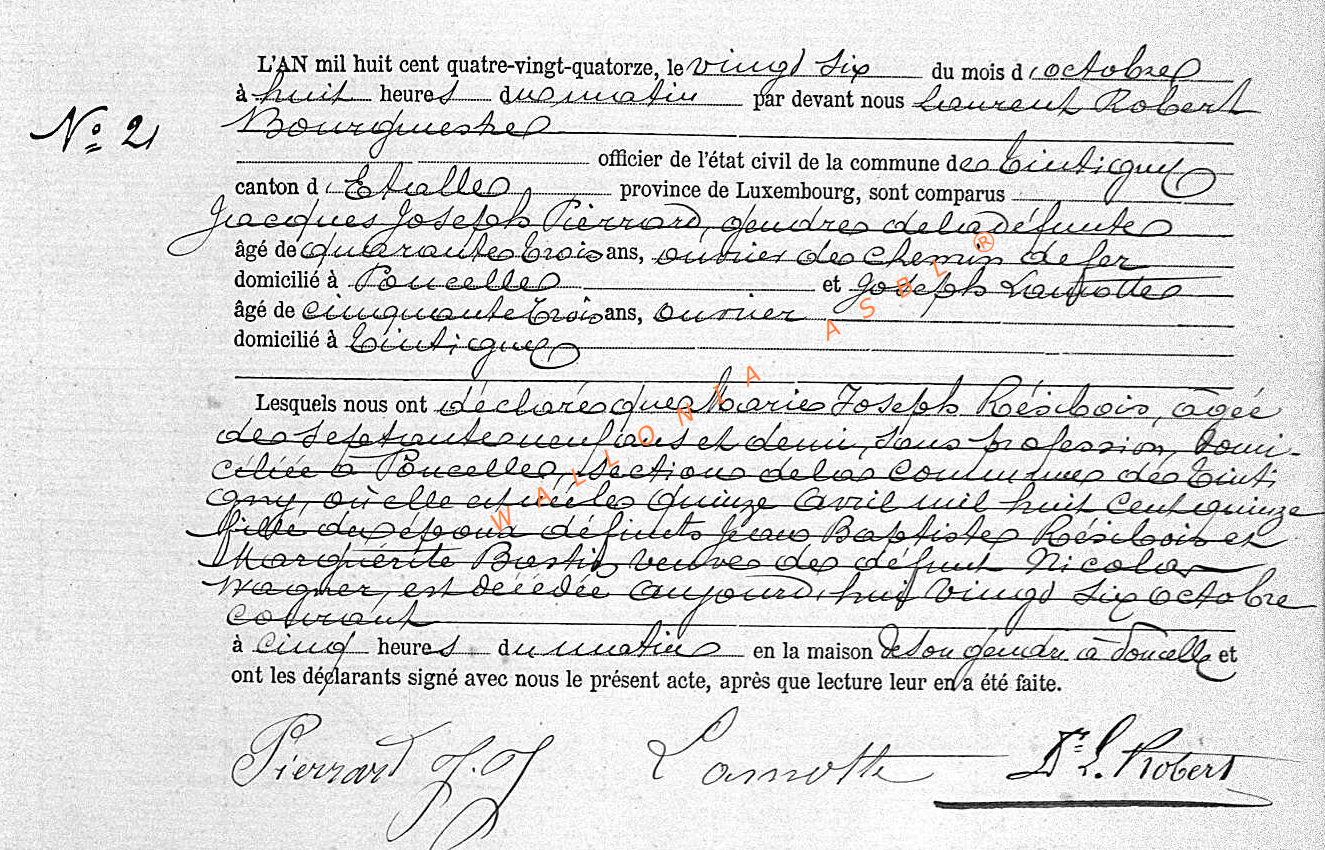 L'AN mil huit cent quatre-vingt-quatorze, le vingt six du mois d'octobre
à huit heures du matin par devant nous Laurent Robert
N° 21
Bourgmestre
officier de l'état civil de la commune de Tintigny
canton d'Etalle, province de Luxembourg, sont comparus
Jacques Joseph Pierrard, gendre de la défunte
âgé de quarante trois ans, ouvrier de chemin de fer
domicilié à Poncelle et Joseph Lamotte
âgé de cinquante trois ans, ouvrier
domicilié à Tintigny
Lesquels nous ont déclaré que Marie Joseph Résibois, agée
de septante neuf ans et demi, sans profession, domi-
ciliée à Poncelle, section de la commune de Tinti
gny, où elle est née le quinze avril mil huit cent quinze
fille des époux défunts Jean Baptiste Résibois et
Marguérite veuve de défunt Nicolas
Wagner, est décédée aujourd'hui vingt six octobre
courant
à cinq heures du matin en la maison de son gendre à Poncelle et
ont les déclarants signé avec nous le présent acte, après que lecture leur en a été faite.
Pierrard J. J Lamotte Dr L. Robert
WALLONIA ASBL ®